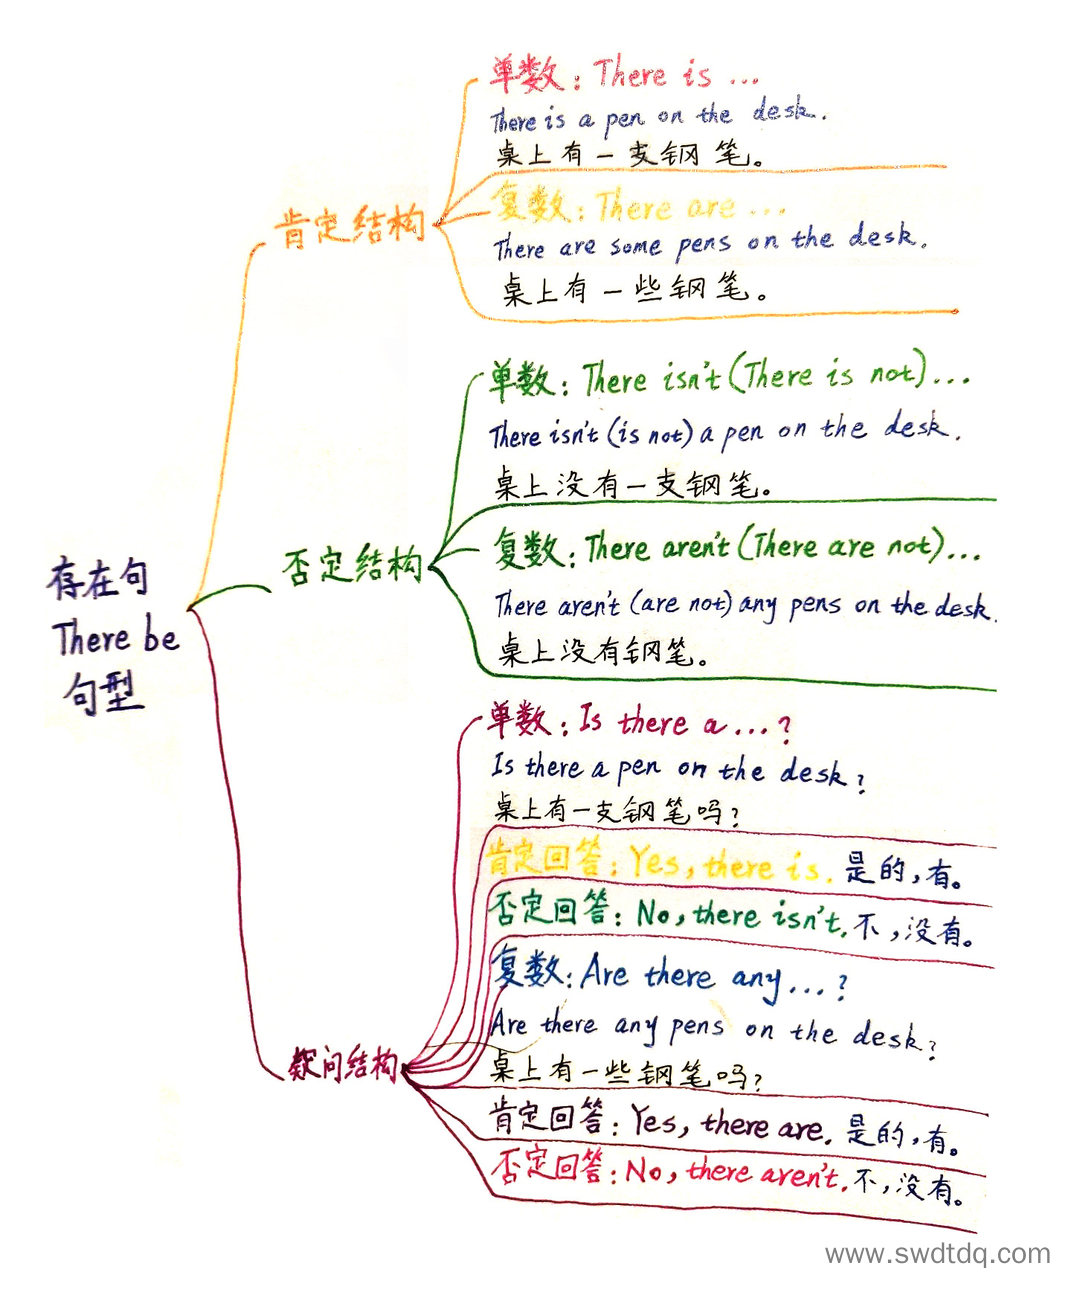 存在句
There be
句型
肯定结构
单数：There is ...
There is a pen on the desk.
桌上有一支钢笔。
复数：There are ...
There are some pens on the desk.
桌上有一些钢笔。
否定结构
单数：There isn't (There is not) ...
There isn't (is not) a pen on the desk.
桌上没有一支钢笔。
复数：There aren't (There are not) ...
There aren't (are not) any pens on the desk.
桌上没有钢笔。
疑问结构
单数：Is there a ... ?
Is there a pen on the desk?
桌上有一支钢笔吗？
肯定回答：Yes, there is. 是的，有。
否定回答：No, there isn't. 不，没有。
复数：Are there any ... ?
Are there any pens on the desk?
桌上有一些钢笔吗？
肯定回答：Yes, there are. 是的，有。
否定回答：No, there aren't. 不，没有。
www.swdtdq.com